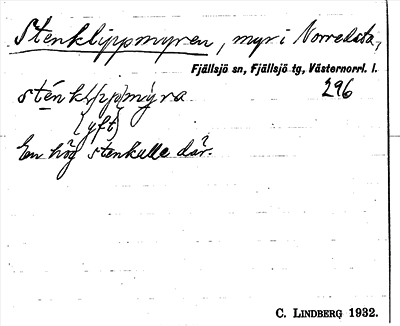 Stenklippmyren, myr i Norredsta,
Fjällsjö sn, Fjällsjö tg, Västernorrl. l.
296
sténkl(pp)mýra
(yft)
En hög stenkulle där.
C. LINDBERG 1932.